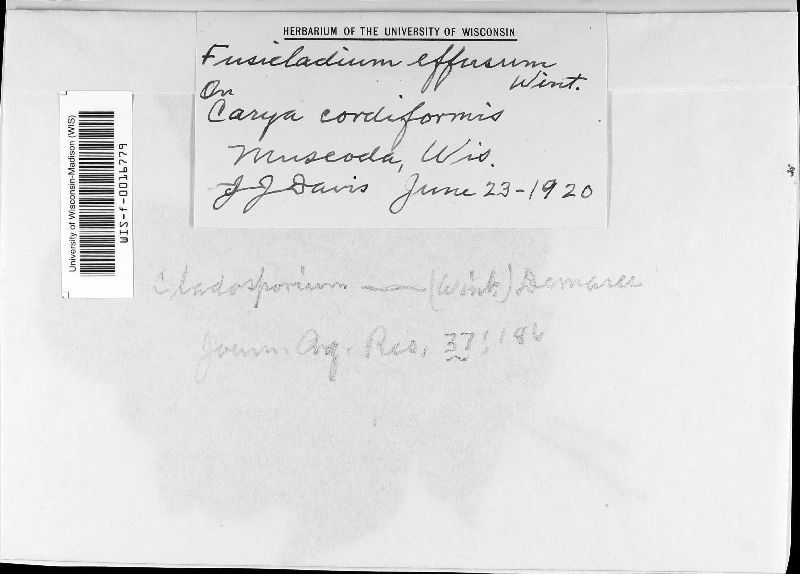 HERBARIUM OF THE UNIVERSITY OF WISCONSIN
Fusicladium effusum
Wint.
On
Carya cordiformis
Muscoda, Wis.
J J Davis June 23-1920
University of Wisconsin-Madison (WIS)
WIS-f-0016779
Cladosporium — (Wint.) Demaree
Journ. Ag. Res. 37: 186